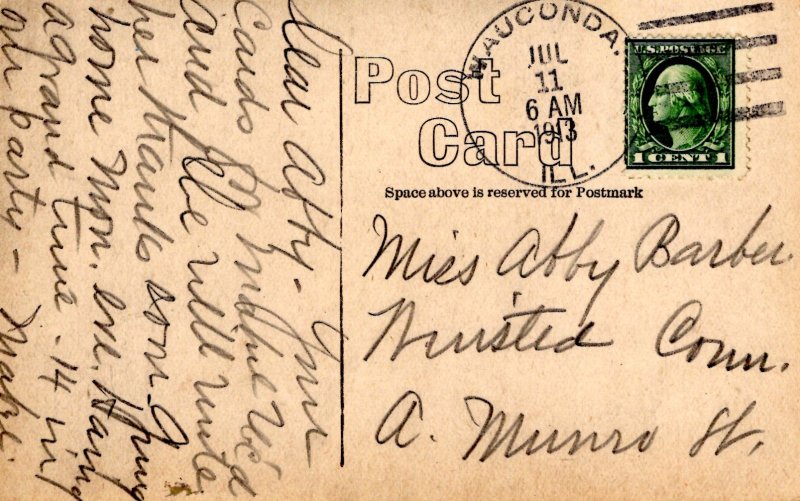 Dear Abby - Your
Cards of Indine rec'd
and Ella will write
her thanks soon. I
home Mon. eve. Having
a grand time - 14 in
our party -
Post
Card
WAUCONDA,
JUL
11
6 AM
1913
ILL.
U.S. POSTAGE
1 CENT 1
Space above is reserved for Postmark
Miss Abby Barber
Winsted Conn.
A. Munro St.